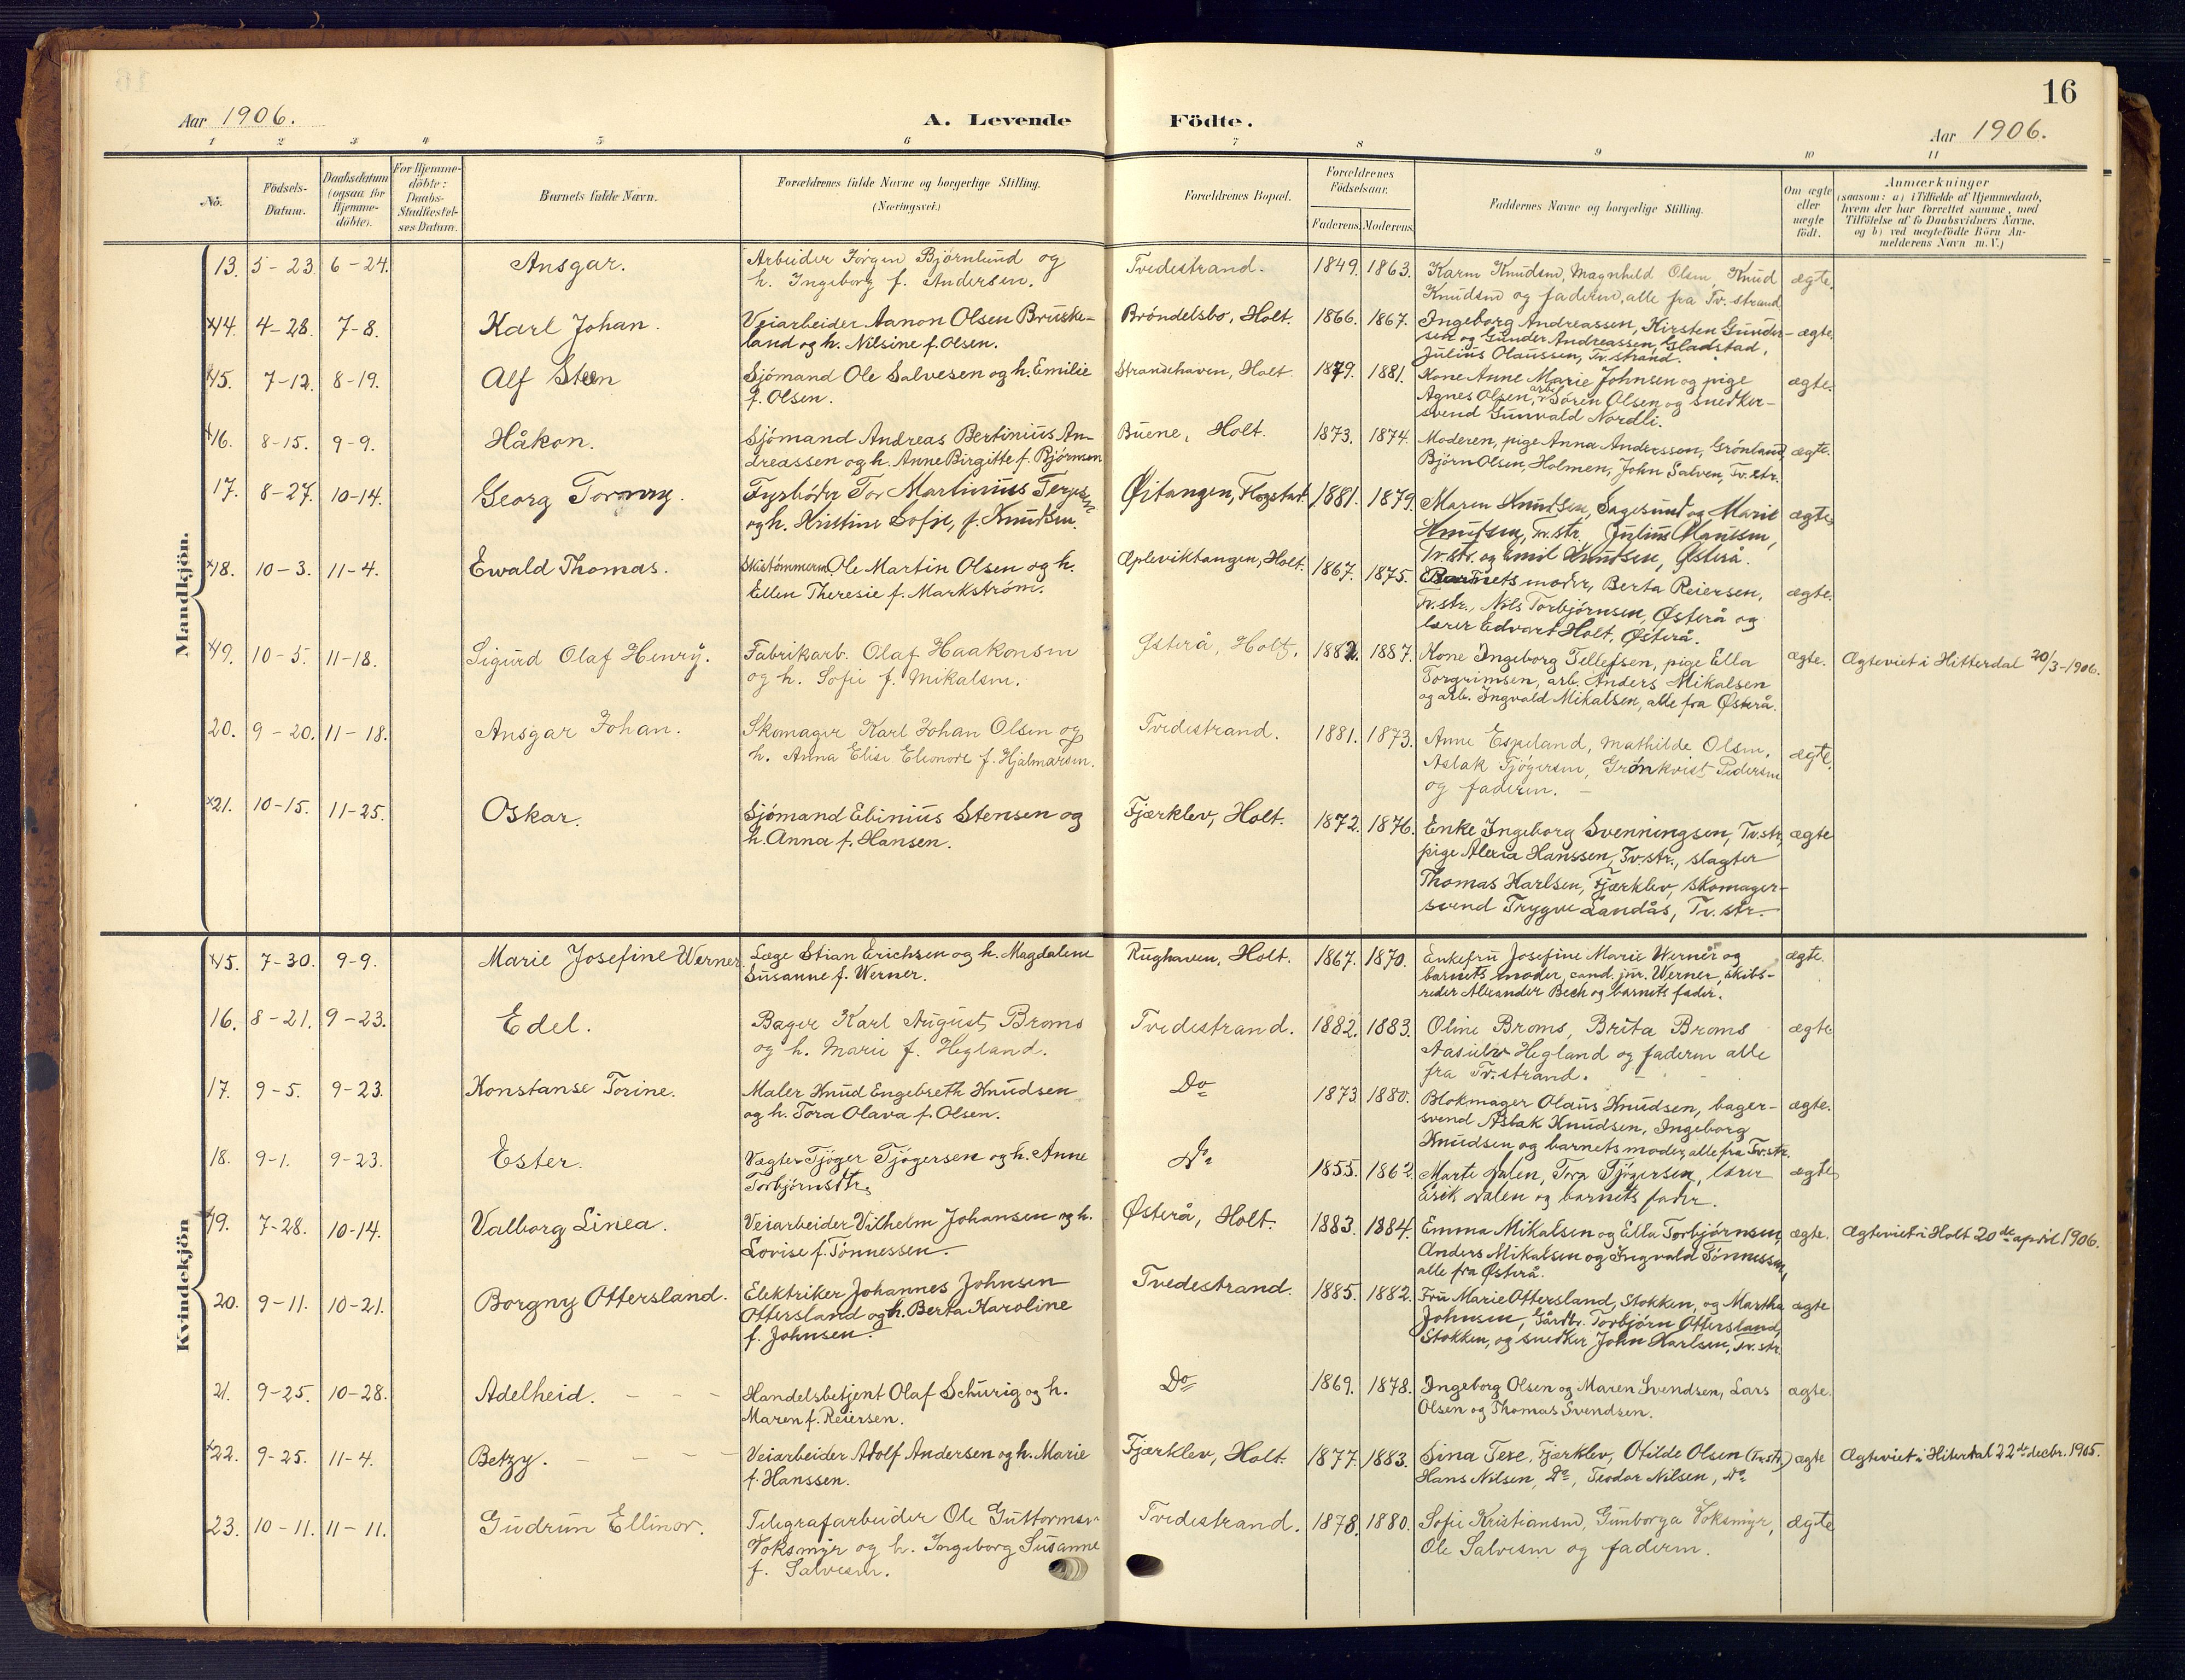 16
Aar 1906.
A. Levende Födte.
Aar 1906.
1 2 3 4 5 6 7 8 9 10 11
No.
Födsels-Datum.
Daabsdatum (ogsaa for Hjemme-döbte).
For Hjemme-döbte: Daabs-Stadfæstel-ses Datum.
Barnets fulde Navn.
Forældrenes fulde Navne og borgerlige Stilling. (Næringsvei.)
Forældrenes Bopæl.
Forældrenes Födselsaar.
Faderens. Moderens.
Faddernes Navne og borgerlige Stilling.
Om ægte eller uægte födt.
Anmærkninger
(saasom: a) i Tilfælde af Hjemmedaab, hvem der har forrettet samme, med Tilföielse af to Daabsvidners Navne, og b) ved uægtefödte Börn An-melderens Navn m. V.)
Mandkjön.
13. 5-23. 6-24. Ansgar. Arbeider Jörgen Björnlund og
h. Ingeborg f. Andersen. Tvedestrand. 1849. 1863. Karen Knudsen, Magnhild Olsen, Knud
Knudsen og faderen, alle fra Tv. strand ægte.
×14. 4-28. 7-8. Karl Johan. Veiarbeider Aanon Olsen Bruske-
land og h. Nilsine f. Olsen. Bröndelsbo, Holt. 1866. 1867. Ingeborg Andreassen, Kirsten Gunder-
sen og Gunder Andreassen, Gladstad,
Julius Olaussen, Tv. strand. ægte.
×15. 7-12. 8-19. Alf Steen Sjömand Ole Salvesen og h. Emilie
f. Olsen. Strandehaven, Holt 1879. 1881. Kone Anne Marie Johnsen og pige
Agnes Olsen, arb. Sören Olsen og snedker-
svend Gunvald Nordli. ægte.
×16. 8-15. 9-9. Håkon. Sjömand Andreas Bertinius An-
dreassen og h. Anne Birgitte f. Björnsen Buene, Holt. 1873. 1874. Moderen, pige Anna Anderssen, Grönland,
Björn Olsen, Holmen, John Salven, Tv. str. ægte.
17. 8-27. 10-14. Georg Tormry. Fyrböder Tor Martinius Terjesen
og h. Kristine Sofie, f. Knudsen. Øitangen, Flogstad. 1881. 1879. Maren Knudsen, Sagesund og Marie
Knudsen, Tv. str., Julius Olaussen,
Tv. str. og Emil Knudsen, Østerå. ægte.
×18. 10-3. 11-4. Ewald Thomas. Skibstömmerm. Ole Martin Olsen og h.
Ellen Theresie f. Markström. Æpleviktangen, Holt. 1867. 1875. Barnets moder, Berta Reiersen,
Tv. str., Nils Torbjörnsen, Østerå og
lærer Edvart Holt, Østerå. ægte.
×19. 10-5. 11-18. Sigurd Olaf Henry. Fabrikarb. Olaf Haakonsen
og h. Sofie f. Mikalsen. Østerå, Holt. 1882. 1887. Kone Ingeborg Tellefsen, pige Ella
Torgrimsen, arb. Anders Mikalsen
og arb. Ingvald Mikalsen, alle fra Østerå. ægte. Ægteviet i Hitterdal 20/3-1906.
20. 9-20. 11-18. Ansgar Johan. Skomager Karl Johan Olsen og
h. Anna Elise Eleonore f. Hjalmarsen. Tvedestrand. 1881. 1873. Anne Espeland, Mathilde Olsen,
Aslak Tjögersen, Grönkvist Pedersen
og faderen. ægte.
×21. 10-15. 11-25. Oskar. Sjömand Ebinius Stensen og
h. Anna f. Hansen. Fjærklev, Holt. 1872. 1876. Enke Ingeborg Svenningsen, Tv. str.,
pige Alexia Hanssen, Tv. str., slagter
Thomas Karlsen, Fjærklev, skomager-
svend Trygve Landås, Tv. str. ægte
Kvindekjön
×15. 7-30. 9-9. Marie Josefine Werner. Læge Stian Erichsen og h. Magdalene
Susanne f. Werner. Rughaven, Holt. 1867. 1870. Enkefru Josefine Marie Werner og
barnets moder, cand. jur. Werner, skibs-
reder Alexander Bech og barnets fader. ægte.
16. 8-21. 9-23. Edel. Bager Karl August Broms
og h. Marie f. Hegland. Tvedestrand. 1882. 1883. Oline Broms, Brita Broms
Aasulv Hegland og faderen alle
fra Tv. strand. ægte
17. 9-5. 9-23. Konstanse Torine. Maler Knud Engebreth Knudsen
og h. Tora Olava f. Olsen. Do 1873. 1880. Blokmager Olaus Knudsen, bager-
svend Aslak Knudsen, Ingeborg
Knudsen og barnets moder, alle fra Tv. str. ægte.
18. 9-1. 9-23. Ester. Vægter Tjöger Tjögersen og h. Anne
Torbjörnsttr. Do 1855. 1862. Marte Dalen, Tora Tjögersen, lærer
Erik Dalen og barnets fader. ægte
×19. 7-28. 10-14. Valborg Linea. Veiarbeider Vilhelm Johansen og h.
Lovise f. Tönnessen. Østerå, Holt. 1883. 1884. Emma Mikalsen og Ella Torbjörnsen,
Anders Mikalsen og Ingvald Tönnessen,
alle fra Østerå. ægte. Ægteviet i Holt 20de april 1906.
20. 9-11. 10-21. Borgny Ottersland. Elektriker Johannes Johnsen
Ottersland og h. Berta Karoline
f. Johnsen. Tvedestrand. 1885. 1882. Fru Marie Ottersland, Stokken, og Martha
Johnsen, Gårdbr. Torbjörn Ottersland,
Stokken, og snedker John Karlsen, Tv. str. ægte
21. 9-25. 10-28. Adelheid. - - - Handelsbetjent Olaf Schurig og h.
Maren f. Reiersen. Do 1869. 1878. Ingeborg Olsen og Maren Svendsen, Lars
Olsen og Thomas Svendsen. ægte.
×22. 9-25. 11-4. Betzy. - - - Veiarbeider Adolf Andersen og h. Marie
f. Hanssen. Fjærklev, Holt. 1877. 1883. Sina Texe, Fjærklev, Otilde Olsen (Tv. str.)
Hans Nilsen, Do, Teodor Nilsen, Do ægte Ægteviet i Hiterdal 22de decbr. 1905.
23. 10-11. 11-11. Gudrun Ellinor. Telegrafarbeider Ole Guttormsen
Voksmyr og h. Ingeborg Susanne
f. Salvesen. Tvedestrand. 1878. 1880. Sofie Kristiansen, Gunborga Voksmyr,
Ole Salvesen og faderen. ægte